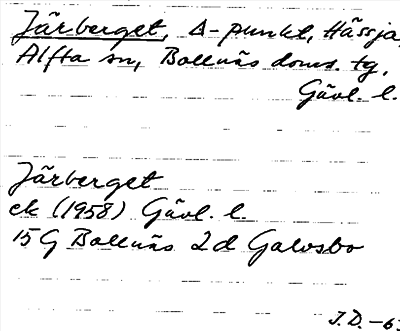 Järberget, Δ-punkt, Hässja,
Alfta sn, Bollnäs doms. tg,
Gävl. l.
Järberget
ek (1958) Gävl. l.
15G Bollnäs 2d Galvsbo
J.D. -6